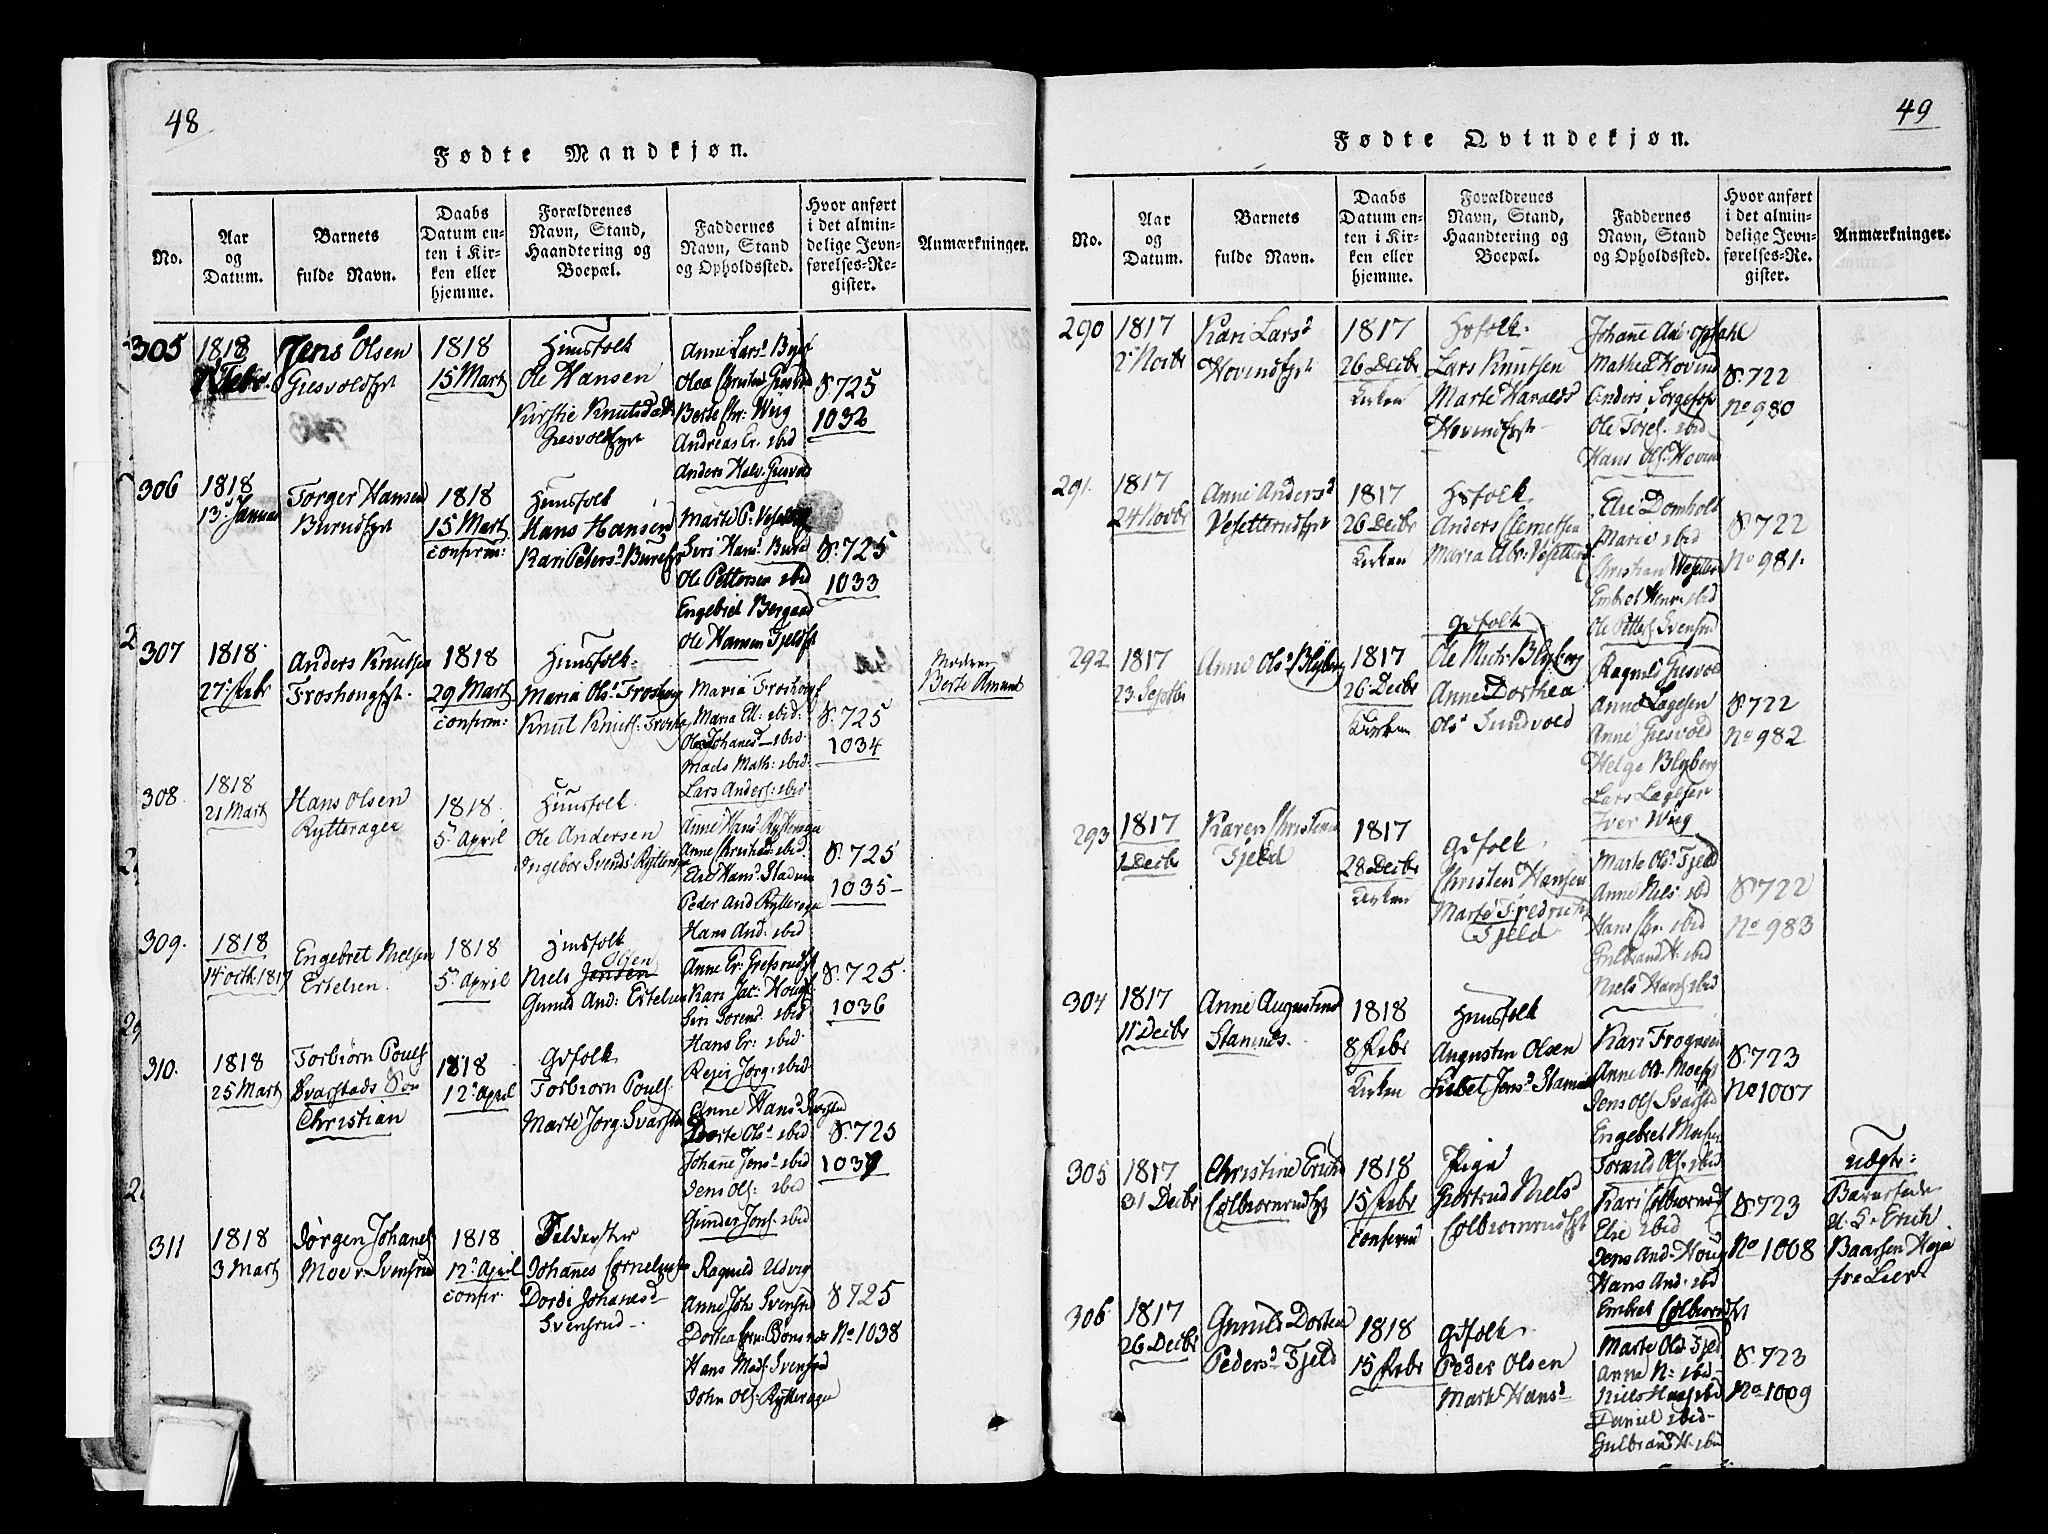 48
Fødte Mandkjøn.
No.
Aar
og
Datum.
Barnets
fulde Navn.
Daabs
Datum en-
ten i Kir-
ken eller
hjemme.
Forældrenes
Navn, Stand,
Haandtering og
Boepæl.
Faddernes
Navn, Stand
og Opholdssted.
Hvor anført
i det almin-
delige Jevn-
førelses-Re-
gister.
Anmærkninger.
305
1818
Febr.
Jens Olsen
Giesvoldeyt
1818
15 Mart
Huusfolk
Ole Hansen
Kirstie Knutsdat
Giesvoldeyt
Anne Lars
Olea Christens
Berte Chr: Wiig
Andreas Er. ibid
Anders Halv. Giesvold
S. 725
1032
306
1818
13 Januar
Torger Hansen
Burudeyt
1818
15 Mart
confirm:
Huusfolk
Hans Hansen
Kari Peters
Marte P.
Siri Hans Burud
Ole Pettersen ibid
Engebret
Ole Hansen
S. 725
1033
307
1818
27 Febr
Anders Knutsen
Froshougeyt.
1818
29 Mart
confirm:
Huusfolk
Maria Ols Froshoug
Knut Knuts:
Maria Froshoug
Maria El: ibid:
Ole Johanes ibid.
Mads Math: ibid.
Lars Anders: ibid
S. 725
1034
Moderen
Berte Amund
308.
1818
21 Mart
Hans Olsen
Rytterager
1818
5 April
Huusfolk
Ole Andersen
Ingebor Svends Rytterager
Anne Hans Rytterager
Anne Christ: ibid.
Else Hans Stadum
Peder And Rytterager
Hans And: ibid
S. 725
1035
309.
1818
14 Octb. 1817
Engebret Nielsen
Ertelien.
1818
5 April
Huusfolk
Olsen
Niels Jensen
Gunild And: Ertelien
Anne Er:
Kari Jac: Houg
Siri Sorens ibid
Hans Er: ibid.
Rejer Jørg: ibid.
S. 725.
1036
310.
1818
25 Mart
Torbiørn Pouls
Svarstads Søn
Christian
1818
12 April
Gdfolk
Torbiørn Pouls
Marte Jørg: Svarstad
Anne Hans Svarstad
Dorte Ols ibid
Johanne Jens ibid
Jens Ols: ibid
Gunder Jons: ibid
S. 725
1037
311
1818
3 Mart
Jørgen Johanes
Moe Svensrud
1818
12 April
confir.
Johannes Cornelius
Dordi Johanes
Svensrud
Ragnild Udvig
Anne Johs Svensrud
Dortea Corn:
Hans Mads: Svensrud
John Ols: Rytterager
S 725
No 1038
49
Fødte Qvindekjøn.
No.
Aar
og
Datum.
Barnets
fulde Navn.
Daabs
Datum en-
ten i Kir-
ken eller
hjemme.
Forældrenes
Navn, Stand,
Haandtering og
Boepæl.
Faddernes
Navn, Stand
og Opholdssted.
Hvor anført
i det almin-
delige Jevn-
førelses-Re-
gister.
Anmærkninger.
290
1817
2 Novbr
Kari Lars
Hovendeyt
1817
26 Decbr
Kirken
Hsfolk.
Lars Knutsen
Marte Haralds
Hovendeyt
Johane And: Opdahl
Mathea Hovind
Anders
Ole ibid.
Hans Ols: Hovind
S. 722
No 980
291.
1817
24 Novbr
Anne Anders
Vesetterudeyt
1817
26 Decbr
Kirken
Hsfolk
Anders Clemetsen
Maria Abr:
Else Domholt
Marie ibid
Christian Vesetter
Embret Henr: ibid
Ole Petters Svensrud
S. 722
No 981.
292
1817
23 Septbr
Anne Ols Blyberg
1817
26 Decbr
Kirken
Gdfolk
Ole Mich: Blyberg
Anne Dorthea
Ols Sundvold
Ragnild Giesvold
Anne Lagesen
Anne Giesvold
Helge Blyberg
Lars Lagesen
Iver Wiig
S. 722
No 982
293
1817
1 Decbr
Karen Christens
Fjeld
1817
28 Decbr
Kirken
Gdfolk.
Christen Hansen
Marte Fredrichs
Fjeld
Marte Ols Fjeld
Anne Niels: ibid
Hans Chr. ibid
Gulbrand H. ibid
Niels Hans: ibid
S. 722
No 983
304
1817
11 Decbr
Anne Augustins
Stamnes.
1818
8 Febr
Kirken
Huusfolk
Augustin Olsen
Jens Stamnes
Kari Frognøen
Anne Ol. Moe
Jens Ols Svarstad
Engebret Moe
Tomild Ols: ibid
S. 723
No 1007
305
1817
31 Decbr
Christine Erichs
Colbiørnrudeyt
1818
15 Febr
Confirm
Pige
Giertrud Niels
Colbiørnrudeyt
Kari Colbiørnrud
Else ibid
Jens And. Houg
Hans And: ibid
Embret Colbiørnrudeyt
S. 723
No 1008
uægte:
Barnefader
Erich
Baarsen
fra Lier
306
1817
26 Decbr
Gunild Dortea
Peders Fjeld
1818
15 Febr
Gdfolk.
Peder Olsen
Marte Hans
Marte Ol. Fjeld
Anne N: ibid
Niels Hans ibid
Daniel ibid
Gulbrand H. ibid
S. 723
No 1009